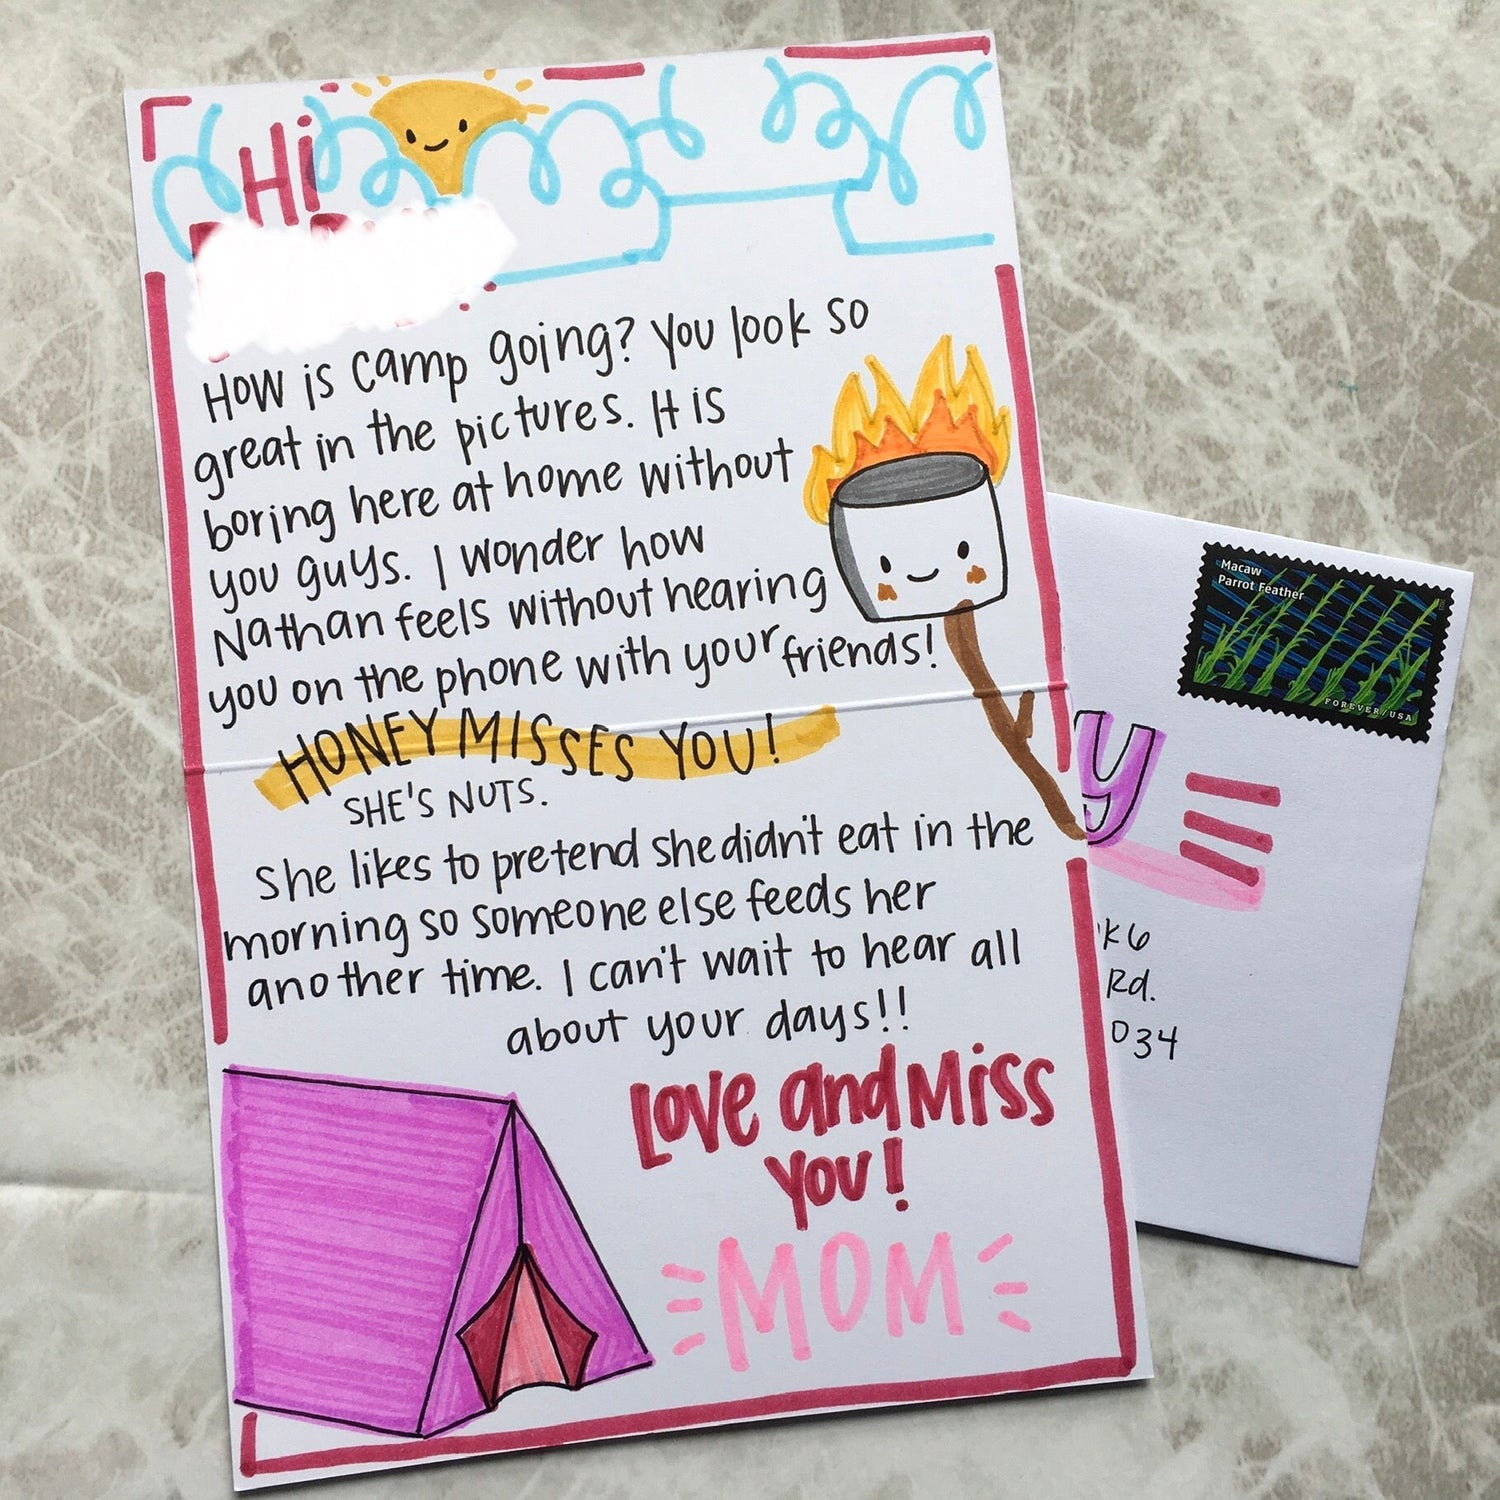 Hi
How is camp going? You look so
great in the pictures. It is
boring here at home without
you guys. I wonder how
Nathan feels without hearing
you on the phone with your friends!
HONEY MISSES YOU!
SHE'S NUTS.
She likes to pretend she didn't eat in the
morning so someone else feeds her
another time. I can't wait to hear all
about your days!!
Love and Miss
you!
MOM
Macaw
Parrot Feather
FOREVER/USA
y
K6
Rd.
034